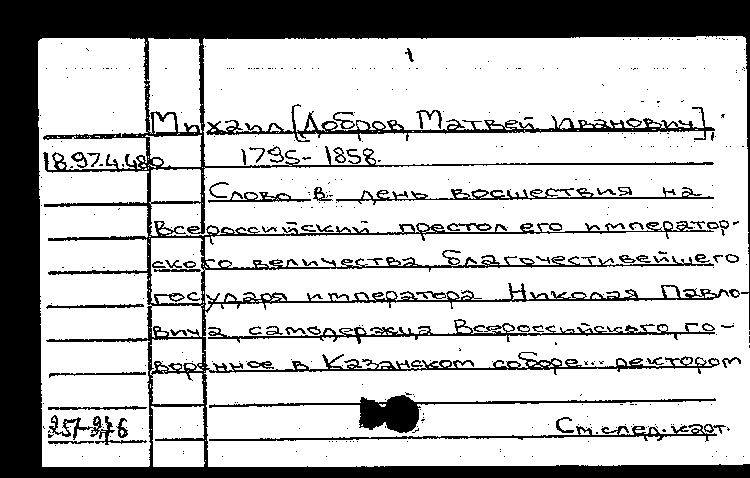 1
Михаил [Добров, Матвей Иванович],
18.97.4.480. 1795-1858.
Слово в день восшествия на
Всероссийский престол его император-
ского величества, благочестивейшего
государя императора Николая Павло-
вича, самодержца Всероссийского, го-
воренное в Казанском соборе... ректором
251-276 См. след. карт.